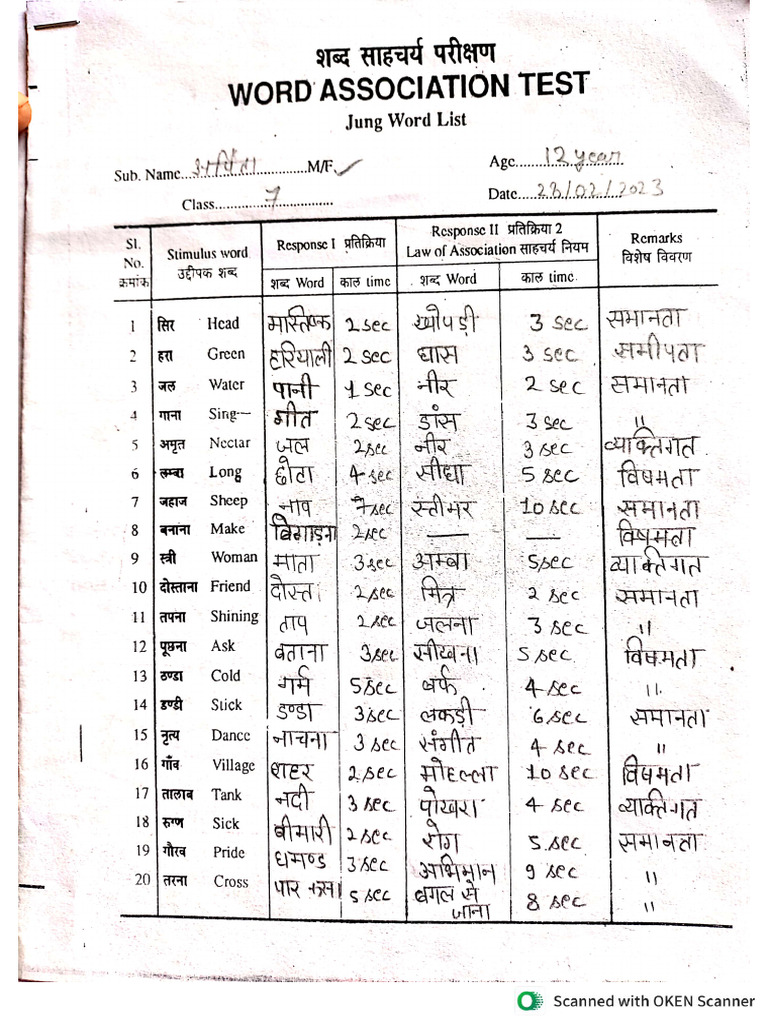 शब्द साहचर्य परीक्षण
WORD ASSOCIATION TEST
Jung Word List
Sub. Name.............................M/F ✓ Age......12 year......
Class.......7....... Date....23/02/2023
Sl. No. क्रमांक Stimulus word उद्दीपक शब्द Response I प्रतिक्रिया Response II प्रतिक्रिया 2 Law of Association साहचर्य नियम Remarks विशेष विवरण
शब्द Word काल time शब्द Word काल time
1 सिर Head मास्तिष्क 2 sec खोपड़ी 3 sec समानता
2 हरा Green हरियाली 2 sec घास 3 sec समीपता
3 जल Water पानी 1 sec नीर 2 sec समानता
4 गाना Sing— गीत 2 sec डांस 3 sec "
5 अमृत Nectar जल 2 sec नीर 3 sec व्याक्तिगत
6 लम्बा Long छोटा 4 sec सीधा 5 sec विषमता
7 जहाज Sheep नाव 7 sec स्तीमर 10 sec समानता
8 बनाना Make बिगाड़ना 2 sec — — विषमता
9 स्त्री Woman माता 3 sec अम्बा 5 sec व्याक्तिगत
10 दोस्ताना Friend दोस्त 2 sec मित्र 2 sec समानता
11 तपना Shining ताप 2 sec जलना 3 sec "
12 पूछना Ask बताना 3 sec सीखना 5 sec विषमता
13 ठण्डा Cold गर्म 5 sec बर्फ 4 sec "
14 डण्डी Stick डण्डा 3 sec लकड़ी 6 sec समानता
15 नृत्य Dance नाचना 3 sec संगीत 4 sec "
16 गाँव Village शहर 2 sec मोहल्ला 10 sec विषमता
17 तालाब Tank नदी 3 sec पोखरा 4 sec व्याक्तिगत
18 रुग्ण Sick बीमारी 2 sec रोग 5 sec समानता
19 गौरव Pride घमण्ड 3 sec अभिमान 9 sec "
20 तरना Cross पार 5 sec बगल से जाना 8 sec "
Scanned with OKEN Scanner